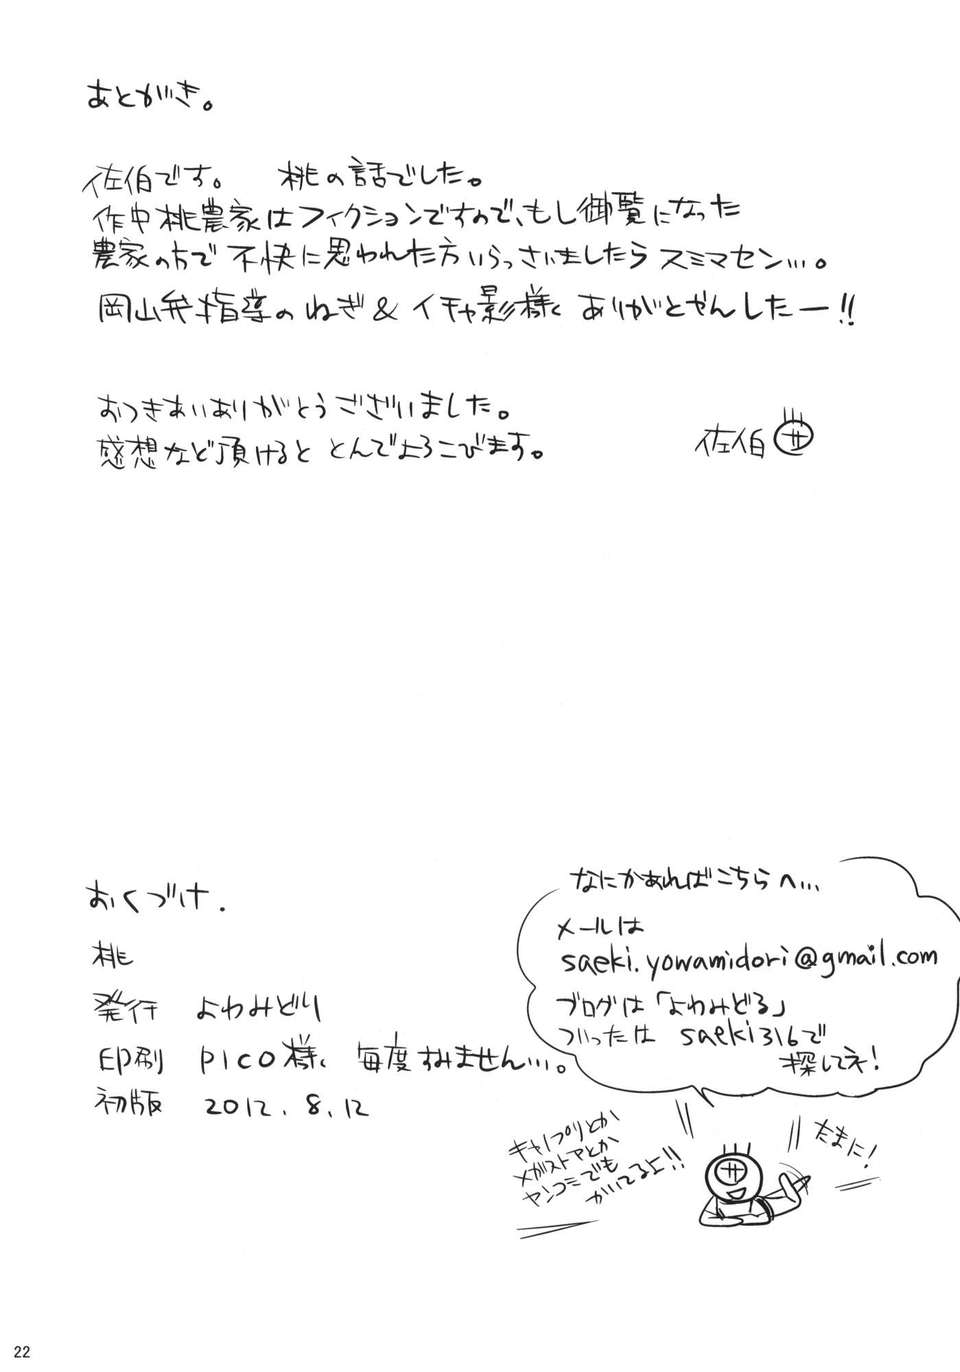 あとがき。
佐伯です。　桃の話でした。
作中桃農家はフィクションですので、もし御覧になった
農家の方で不快に思われた方いらっさいましたらスミマセン…。
岡山弁指導のねぎ&イチャ影様〱ありがとやんしたー!!
おつきあいありがとうございました。
感想など頂けるととんでよろこびます。
佐伯 サ
おくづけ.
桃
発行　よわみどり
印刷　PICO様〱 毎度すみません…。
初版　2012.8.12
なにかあればこちらへ…
メールは
saeki.yowamidori@gmail.com
ブログは「よわみどる」
ついったは saeki316で
探してネ!
キャノプリとか
メガストアとか
ヤンコミでも
かいてるよ!!
たまに!
サ
22